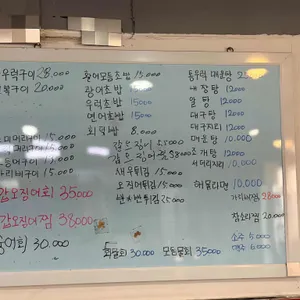 우럭구이 28,000
전복구이 20,000
머리구이 15,000
구이 15,000
등어구이 15,000
배구이 15,000
갑오징어회 35000
갑오징어찜 38000
어회 30.000
활어모듬초밥 15,000
광어초밥
우럭초밥 15000
연어초밥 15000
회덮밥 8,000
갑오징어
갑오징어 38000
새우튀김 15,000
오징어튀김 15,000
반반새튀김 25,000
회물회 30,000
모듬물회 35000
통우럭 매운탕
내장탕 12000
알탕 12000
대구탕 12000
대구지리 12000
매운탕 10,000
조개탕 12000
서더리지리 10,000
해물라면 10,000
가리비찜 28000
참소라찜 20,000
소주 5,000
맥주 5,000